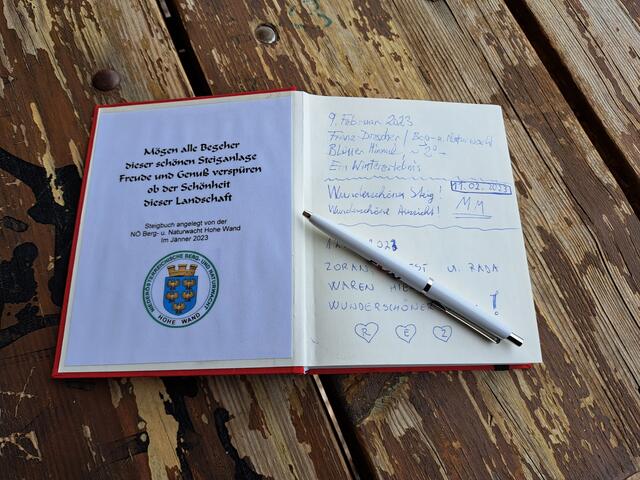 Mögen alle Begeher
dieser schönen Steiganlage
Freude und Genuß verspüren
ob der Schönheit
dieser Landschaft
Steigbuch angelegt von der
NÖ Berg- u. Naturwacht Hohe Wand
Im Jänner 2023
NIEDERÖSTERREICHISCHE BERG- UND NATURWACHT
HOHE WAND
9. Februar 2023
Franz Drescher / Berg- u. Naturwacht
Blauer Himmel
Ein Wintererlebnis
Wunderschöner Steig!
11.02.2023
Wunderschöne Aussicht!
MM
ZORAN
U. RADA
WAREN
WUNDERSCHÖNER
!
R E Z